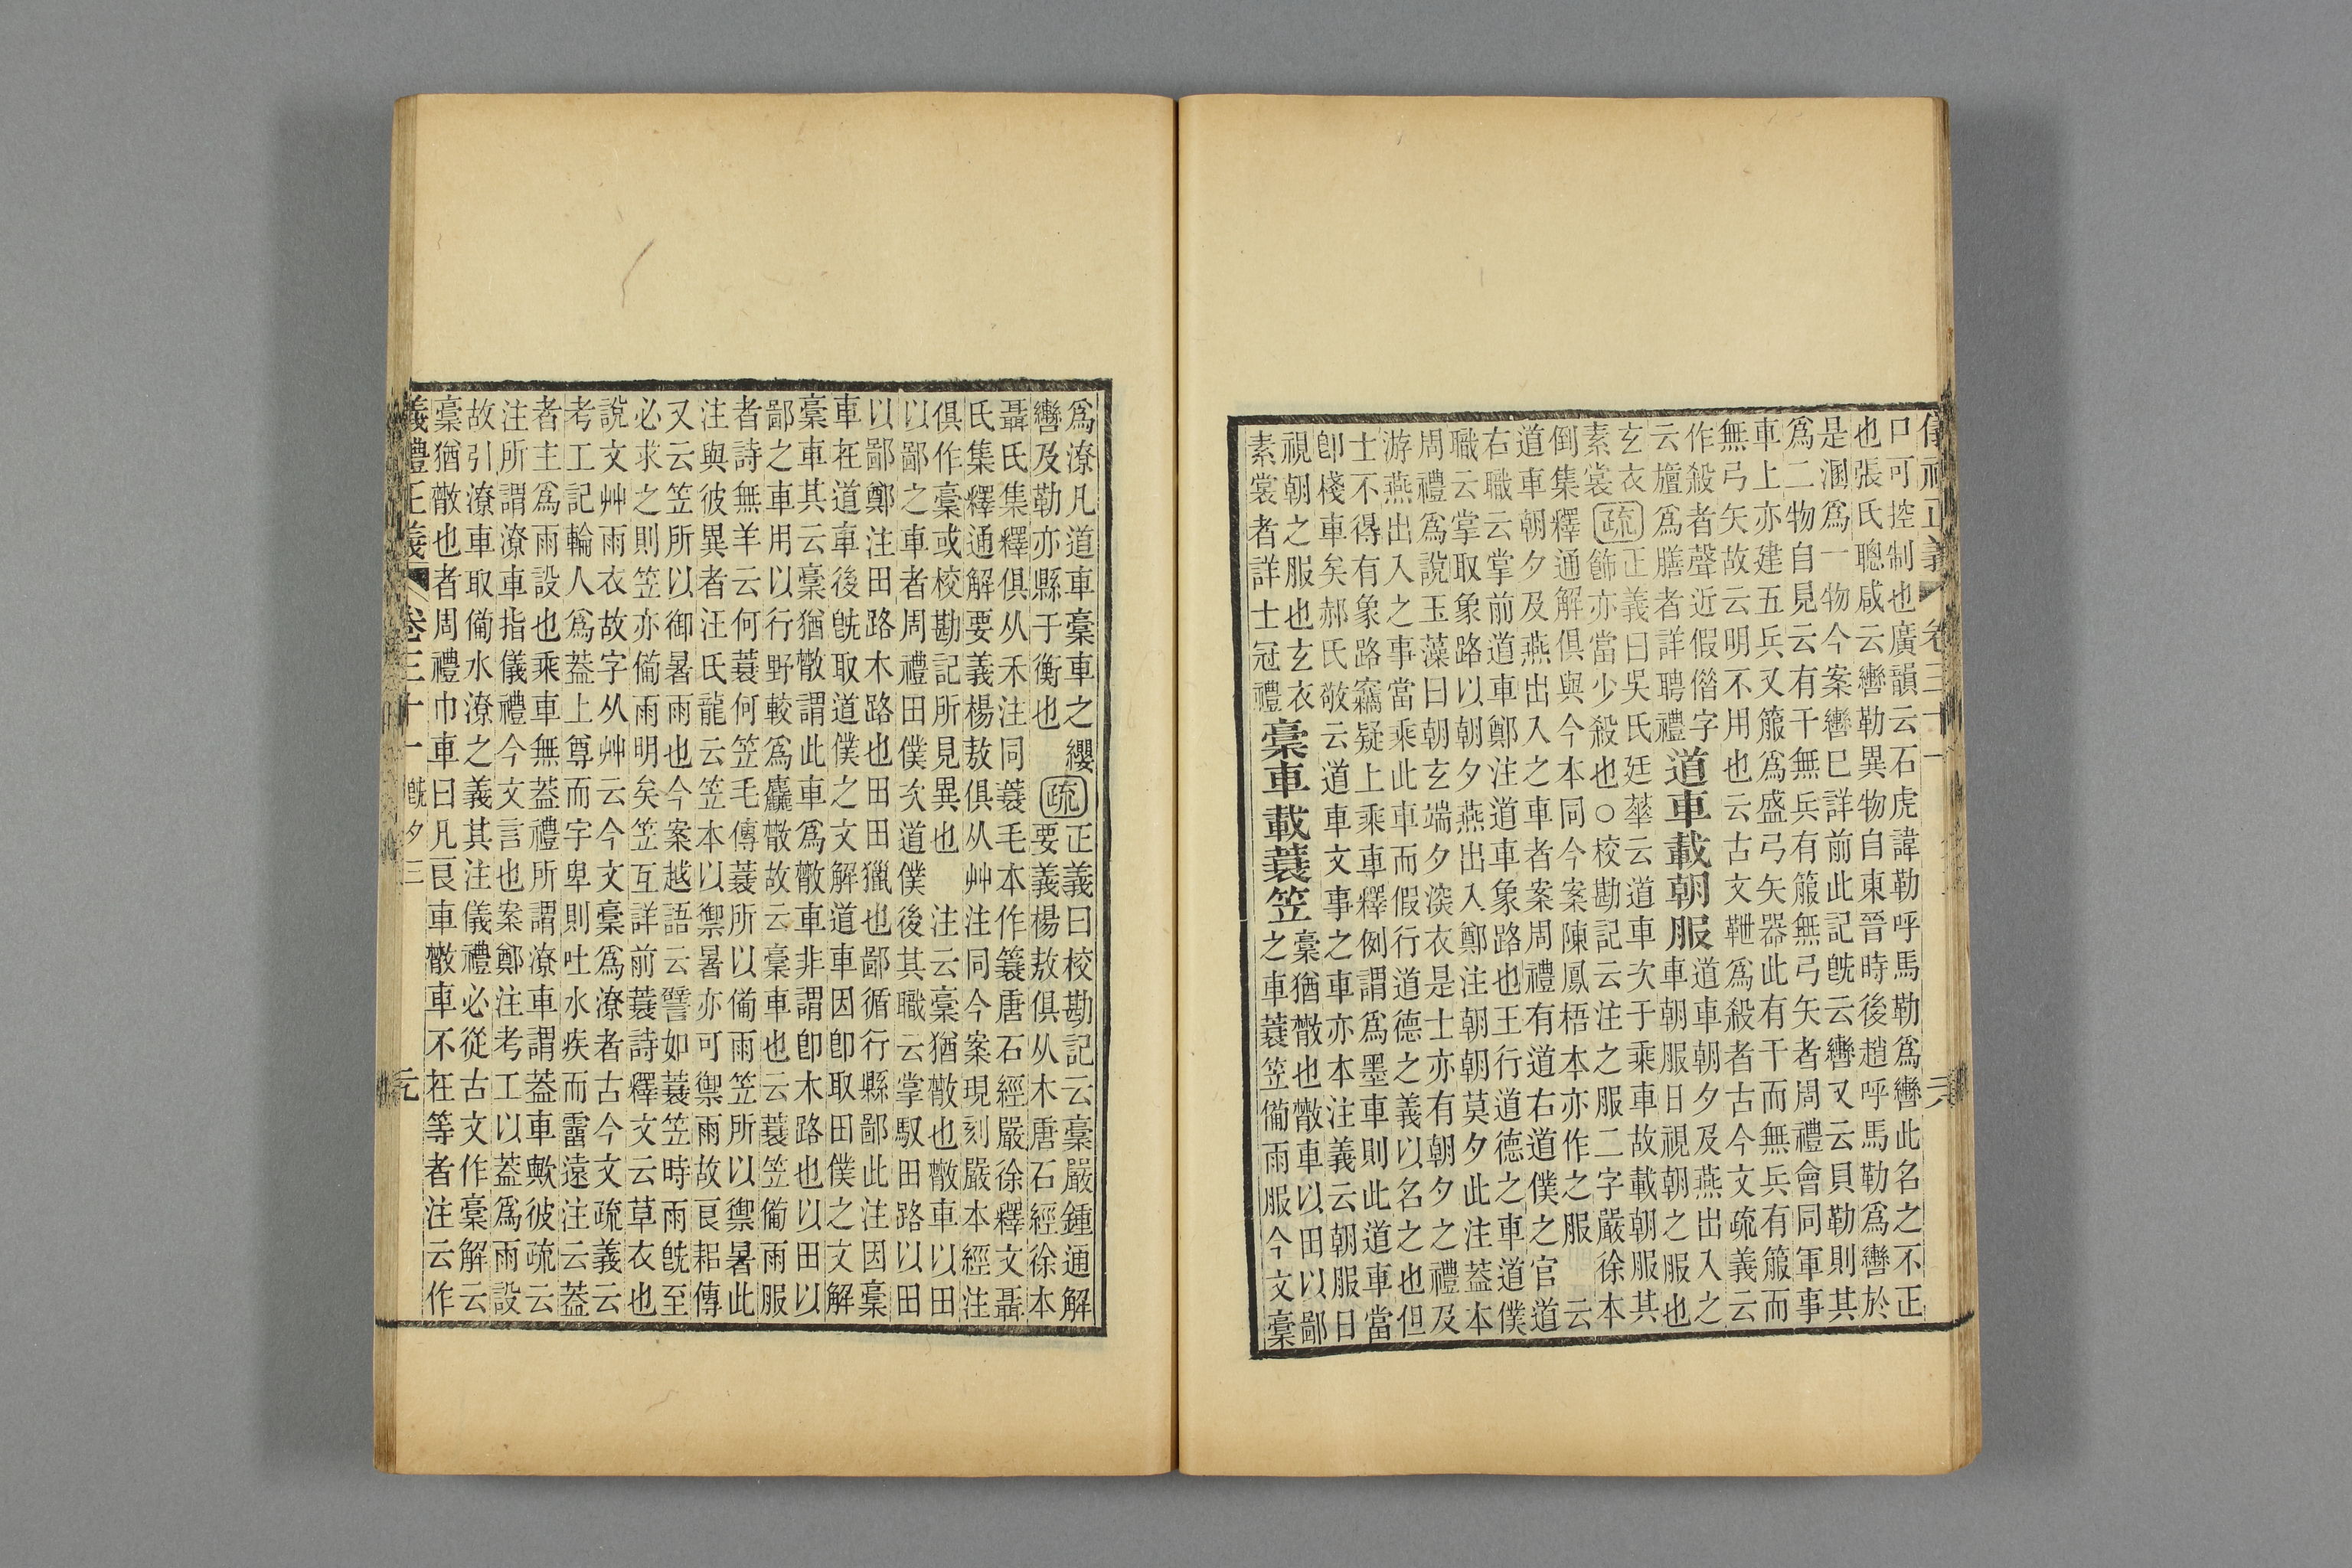 儀禮正義 卷三十一
口可控制也廣韻云石虎諱勒呼馬勒爲轡此名之不正
也張氏聰咸云轡勒異物自東晉時後趙呼馬勒爲轡於
是溷爲一物今案轡巳詳前此記旣云轡又云貝勒則其
爲二物自見云有干無兵有箙無弓矢者周禮會同軍事
車上亦建五兵又箙爲盛弓矢器此有干而無兵有箙而
無弓矢故云明不用也云古文靾爲殺者古今文疏義云
作殺者聲近假偺字
云旜爲膳者詳聘禮
道車載朝服
道車朝夕及燕出入之
車朝服日視朝之服也
玄衣
素裳
疏
正義曰吳氏廷華云道車次于乘車故載朝服其
飾亦當少殺也○校勘記云注之服二字嚴徐本
倒集釋通解俱與今本同今案陳鳳梧本亦作之服 云
道車朝夕及燕出入之車者案周禮有道右道僕之官道
右職云掌前道車鄭注道車象路也王行道德之車道僕
職云掌取象路以朝夕燕出入鄭注朝朝莫夕此注蓋本
周禮爲說玉藻曰朝玄端夕深衣是士亦有朝夕之禮及
游燕出入之事當乘此車而假行道德之義以名之也但
士不得有象路竊疑上乘車釋例謂爲墨車則此道車當
卽棧車矣郝氏敬云道車文事之車亦本注義云朝服日
視朝之服也玄衣
素裳者詳士冠禮
稾車載蓑笠
稾猶散也散車以田以鄙
之車蓑笠備雨服今文稾
爲潦凡道車稾車之纓
轡及勒亦縣于衡也
疏
正義曰校勘記云稾嚴鍾通解
要義楊敖俱从木唐石經徐本
聶氏集釋俱从禾注同蓑毛本作簑唐石經嚴徐釋文聶
氏集釋通解要義楊敖俱从艸注同今案現刻嚴本經注
俱作稾或校勘記所見異也 注云稾猶散也散車以田
以鄙之車者周禮田僕次道僕後其職云掌馭田路以田
以鄙鄭注田路木路也田田獵也鄙循行縣鄙此注因稾
車在道車後旣取道僕之文解道車因卽取田僕之文解
稾車其云稾猶散謂此車爲散車非謂卽木路也以田以
鄙之車用以行野較爲麤散故云稾車也云蓑笠備雨服
者詩無羊云何蓑何笠毛傳蓑所以備雨笠所以禦暑此
注與彼異者汪氏龍云笠本以禦暑亦可禦雨故良耜傳
又云笠所以御暑雨也今案越語云譬如蓑笠時雨旣至
必求之則笠亦備雨明矣笠互詳前蓑詩釋文云草衣也
說文艸雨衣故字从艸云今文稾爲潦者古今文疏義云
考工記輪人爲蓋上尊而宇卑則吐水疾而霤遠注云蓋
者主爲雨設也乘車無蓋禮所謂潦車謂蓋車歟彼疏云
注所謂潦車指儀禮今文言也案鄭注考工以蓋爲雨設
故引潦車取備水潦之義其注儀禮必從古文作稾解云
稾猶散也者周禮巾車曰凡良車散車不在等者注云作
儀禮正義 卷三十一 旣夕三